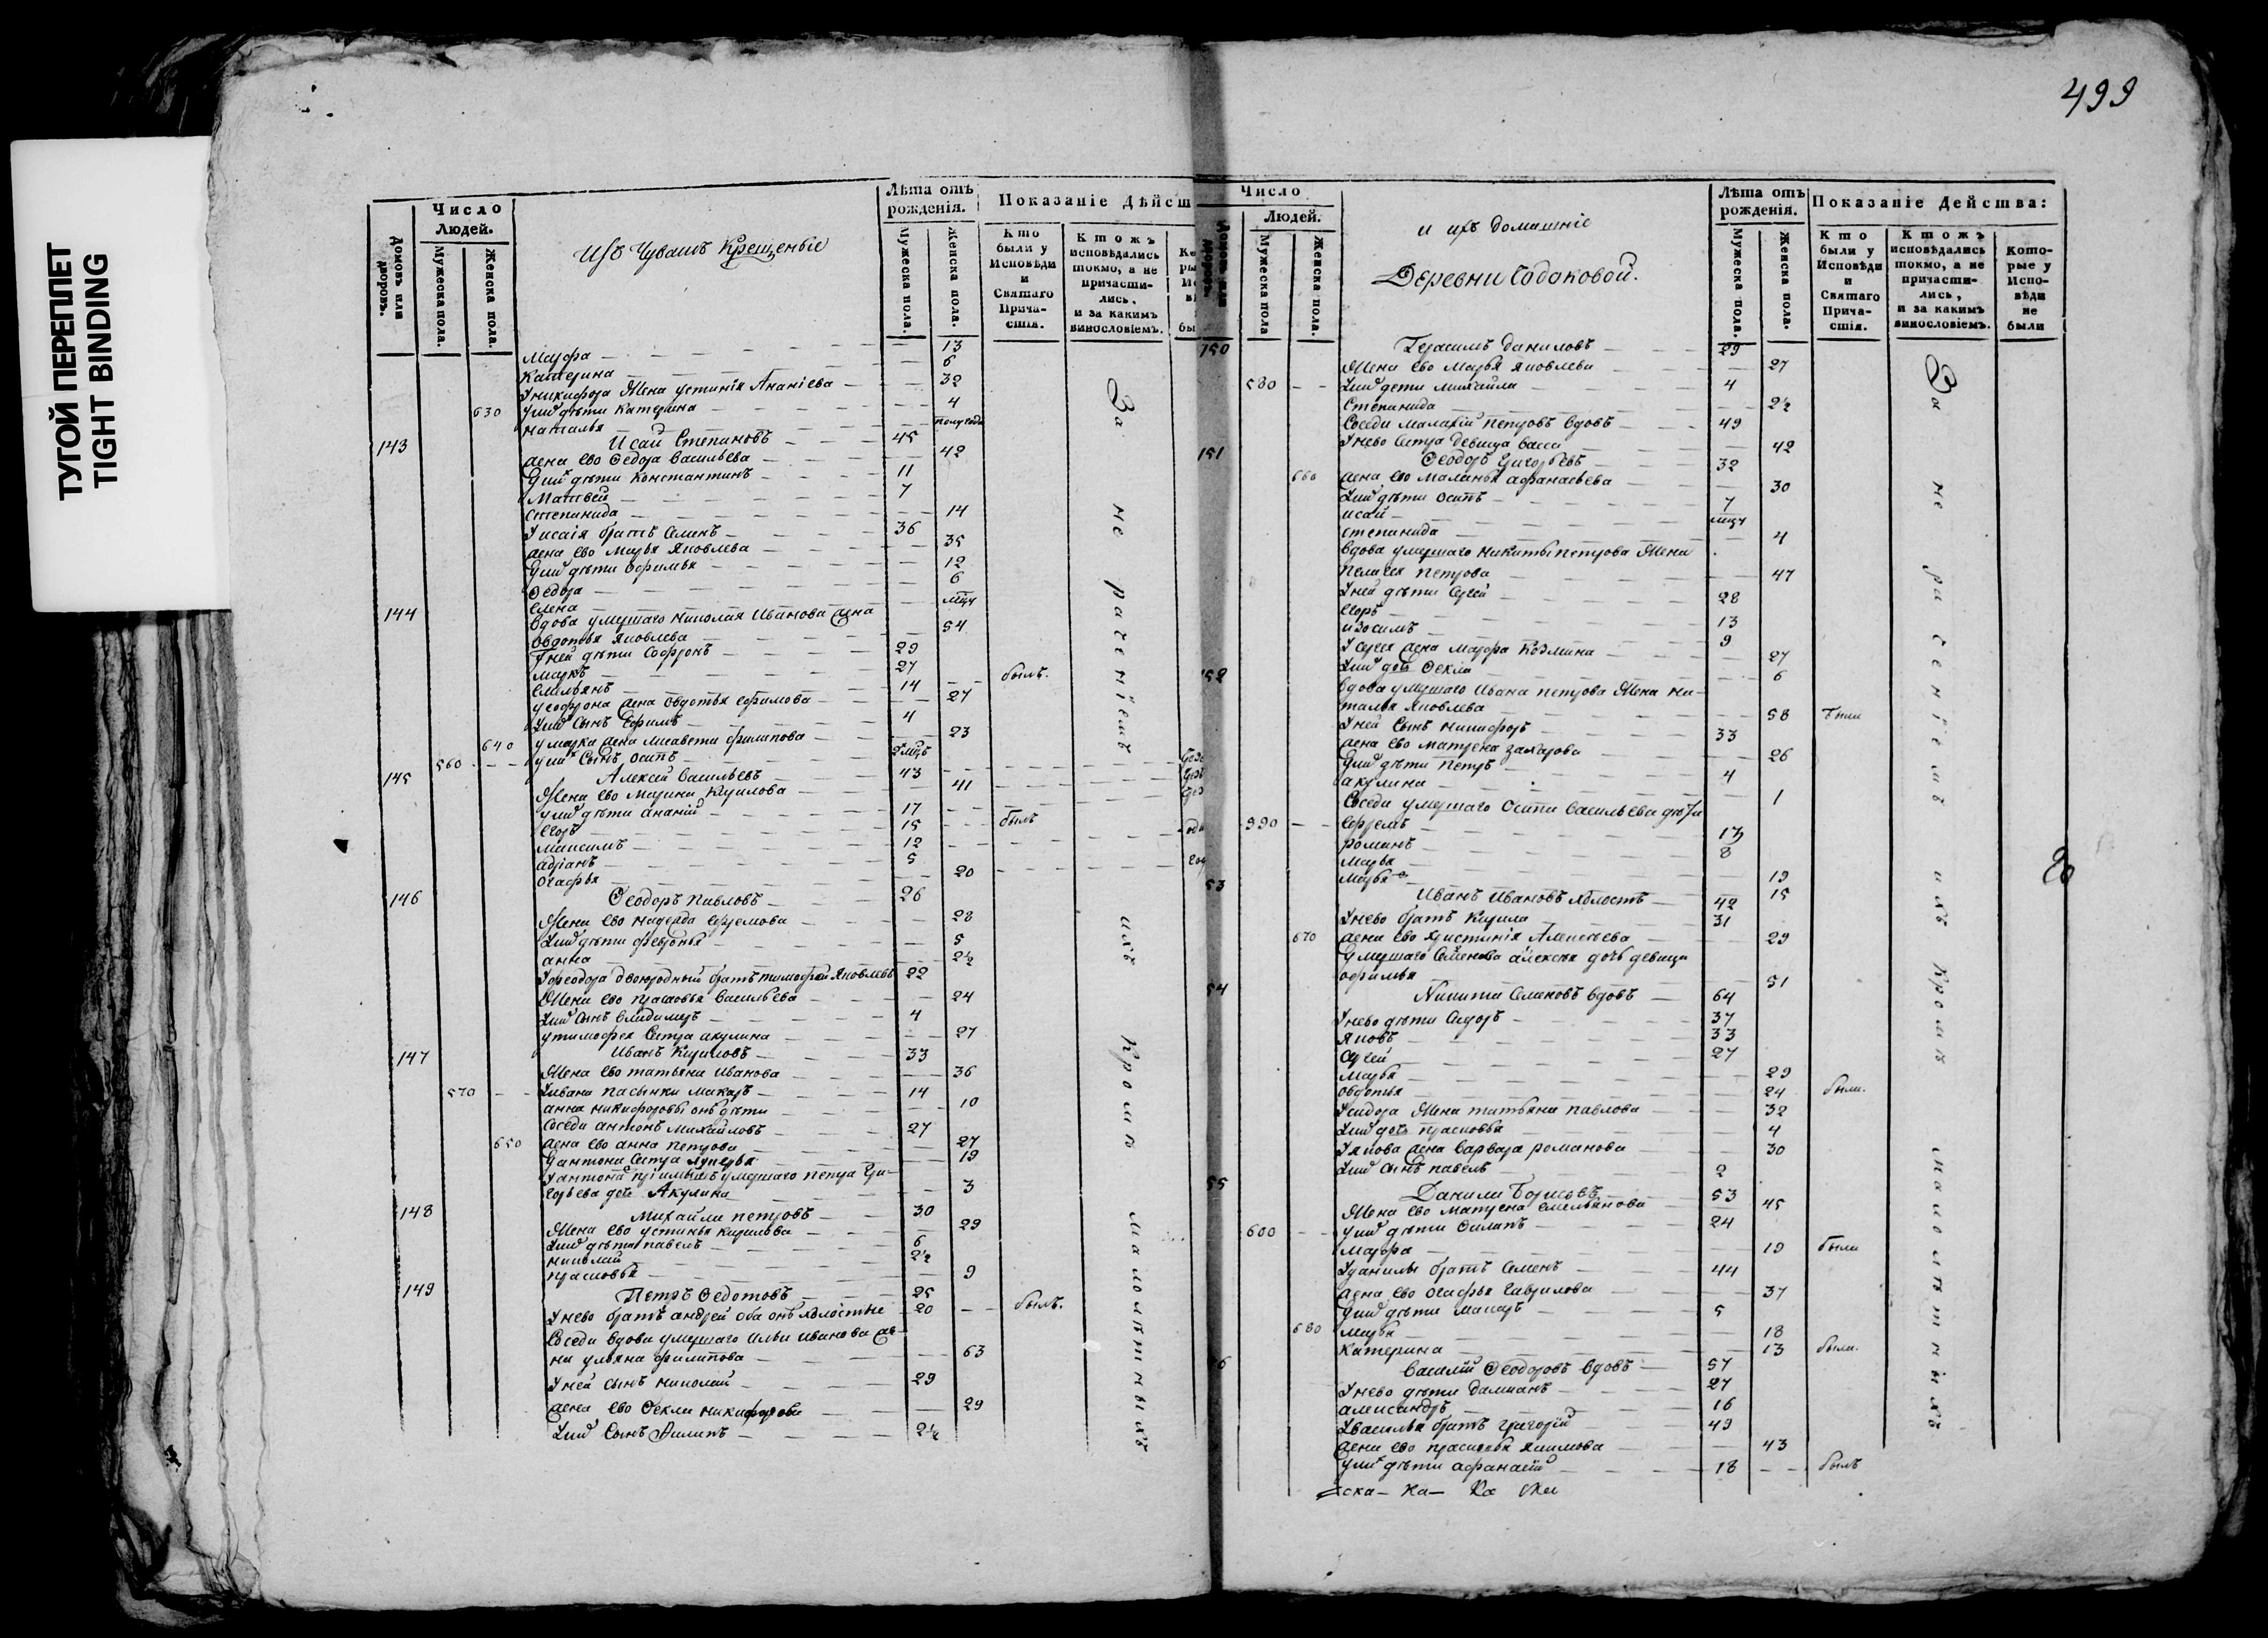 ТУГОЙ ПЕРЕПЛЕТ
TIGHT BINDING
Домовъ или дворовъ.
Число
Людей.
Мужеска пола.
Женска пола.
Изъ Чувашъ Крещеные
Лѣта отъ рожденія.
Мужеска пола.
Женска пола.
Показаніе Дѣйст
Кто были у Исповѣди и Святаго Причастія.
Ктожъ исповѣдались токмо, а не причастились, и за какимъ винословіемъ.
Марфа — 13
Катерина — 6
У никифора Жена устинія Ананіева — 32
630 У них дѣти Катерина — 4
наталья — полугода
143 Исай Степановъ — 45
жена ево Ѳедора Васильева — 42
У них дѣти Константинъ — 11
Матвей — 7
степанида — 14
У исаія братъ Семенъ — 36
жена ево Марья Яковлева — 35
У них дѣти Офимья — 12
Ѳедора — 6
Елена — мцъ
144 Вдова умершаго николая Иванова жена
Овдотья Яковлева — 54
У ней дѣти Софронъ — 29
маркъ — 27 былъ.
Емельянъ — 14
у софрона жена Овдотья Ефимова — 27
У них Сынъ Ефимъ — 4
640 у марка жена лисавета филипова — 23
560 у них Сынъ осипъ — 2 мцъ
145 Алексей Васильевъ — 43
Жена ево Марина Кирилова — 41
у них дѣти ананій — 17
Егоръ — 15 былъ
Максимъ — 12
адріанъ — 5
Огафья — 20
146 Ѳеодоръ Павловъ — 26
Жена ево надежда Ефремова — 28
У них дѣти февронья — 5
анна — 2½
У феодора двоюродный братъ тимофей Яковлевъ 22
Жена ево прасковья Васильева — 24
У них сынъ Владимеръ — 4
у тимофея Сестра акулина — 27
147 Иванъ Кириловъ — 33
Жена ево татьяна Иванова — 36
570 У ивана пасынки Макаръ — 14
анна никифоровы онѣ дѣти — 10
Соседи антонъ Михайловъ — 27
650 жена ево анна петрова — 27
У антона Сестра лукерья — 19
У антона пріимышъ умершаго петра Гри-
горьева дочь Акулина — 3
148 Михайла петровъ — 30
Жена ево устинья Кирилова — 29
У них дѣти павелъ — 6
николай — 2½
прасковья — 9
149 Петръ Ѳедотовъ — 25
У нево братъ андрей оба онѣ холостые 20 былъ.
Соседи вдова умершаго ильи иванова же-
на ульяна филипова — 63
У ней сынъ николай — 29
жена ево Ѳекла никифорова — 29
У них Сынъ Филипъ — 2½
За не раченіемъ ихъ кромѣ малолѣтныхъ
499
Число
Людей.
Мужеска пола
Женска пола.
и ихъ домашніе
Деревни
Лѣта отъ рожденія.
Мужеска пола.
Женска пола.
Показаніе Действа:
Кто были у Исповѣди и Святаго Причастія.
Ктожъ исповѣдались токмо, а не причастились, и за какимъ винословіемъ.
Которые у Исповѣди не были
150 Герасимъ Даниловъ — 29
Жена ево Марья Яковлева — 27
580 У них дети михайла — 4
Степанида — 2½
Соседи Малахій Петровъ вдовъ — 49
У нево Сестра девица васса — 42
151 Ѳеодоръ Григорьевъ — 32
660 жена ево маланья афанасьева — 30
У них дѣти осипъ — 7
исай — мцъ
степанида — 4
вдова умершаго никиты петрова Жена
Пелагея Петрова — 47
У ней дѣти Сергей — 28
Егоръ — 13
изосимъ — 9
У сергея жена марфа Козмина — 27
У них дочь Ѳекла — 6
152 вдова умершаго Ивана петрова Жена на-
талья Яковлева — 58 были
У ней Сынъ никифоръ — 33
жена ево матрена захарова — 26
У них дѣти Петръ — 4
акулина — 1
Соседи умершаго Осипа Васильева дѣти
590 Ефремъ — 13
романъ — 8
Марья — 19
Марья — 15
53 Иванъ Ивановъ холостъ — 42
У нево братъ Кирила — 31
670 жена ево христинія Алексеева — 29
Умершаго Семенова алексея дочь девица
офимья — 51
54 Никита Семеновъ вдовъ — 64
У нево дѣти Сидоръ — 37
Яковъ — 33
Сергей — 27
Марья — 29
Овдотья — 24 были.
У сидора Жена татьяна павлова — 32
У них дочь прасковья — 4
У якова жена варвара романова — 30
У них сынъ павелъ 2
55 Данила Борисовъ — 53
Жена ево матрена Емельянова — 45
600 у них дѣти Филипъ — 24
Марфа — 19 были
У данилы братъ Семенъ — 44
жена ево Огафья Гаврилова — 37
У них дѣти макаръ — 5
680 Марья — 18
Катерина — 13 были.
6 Василій Ѳеодоровъ вдовъ — 57
У нево дѣти Дамианъ — 27
александръ — 16
У василья братъ григорій — 49
жена ево прасковья Якимова — 43
у них дѣти афанасій — 18 былъ
За не раченіемъ ихъ кромѣ малолѣтныхъ